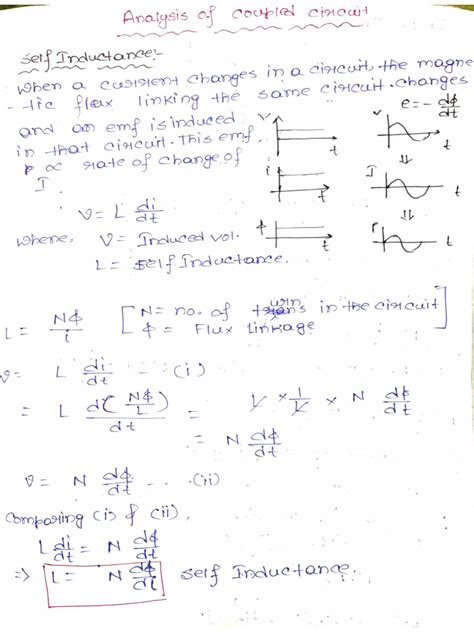 Analysis of coupled circuit
Self Inductance:-
When a current changes in a circuit, the magne
-tic flux linking the same circuit changes
and an emf is induced
e = - dϕ/dt
in that circuit. This emf
∝ rate of change of
I
V = L di/dt
where, V = Induced vol.
L = Self Inductance.
V t
i t
ϕ t
V t
⇓
I t
⇓
t
L = Nϕ/i [N = no. of turns in the circuit
ϕ = Flux linkage]
V = L di/dt ... (i)
= L d(Nϕ/L)/dt = L × 1/L × N dϕ/dt
= N dϕ/dt
V = N dϕ/dt ... (ii)
Comparing (i) & (ii),
L di/dt = N dϕ/dt
⇒ L = N dϕ/di Self Inductance.